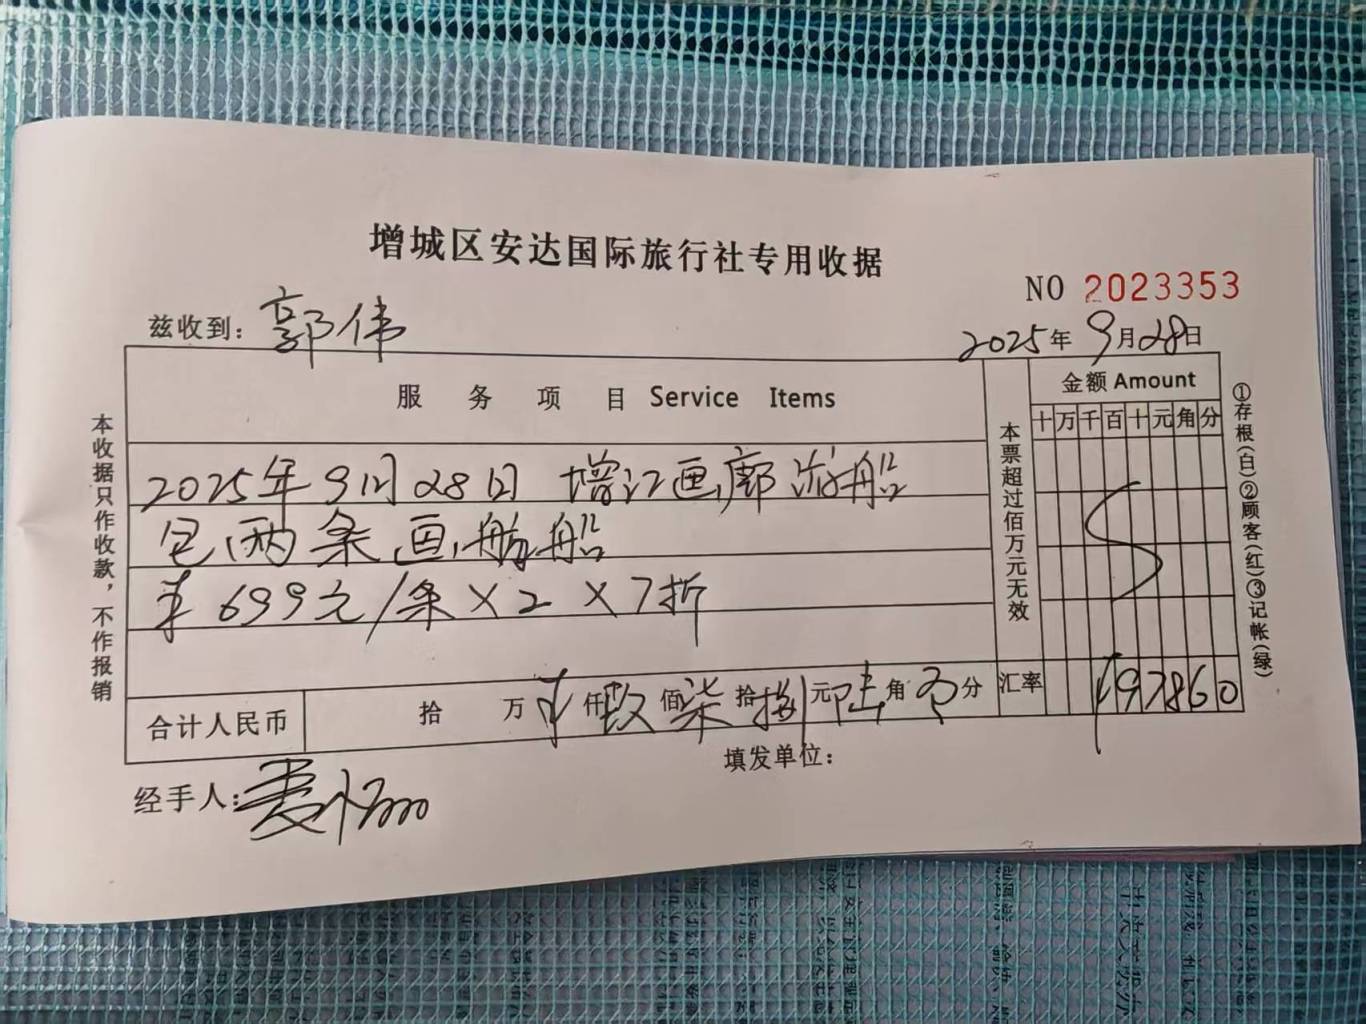 增城区安达国际旅行社专用收据
NO 2023353
兹收到：郭伟
2025年9月28日
服务项目 Service Items
金额 Amount
十万千百十元角分
本票超过佰万元无效
2025年9月28日 增江画廊游船
包两条画舫船
¥699元/条×2×7折
合计人民币 拾 万 ¥ 仟 玖 佰 柒 拾 捌 元 陆 角 零 分
汇率 ¥97860
经手人：
填发单位：
本收据只作收款，不作报销
①存根(白)②顾客(红)③记帐(绿)